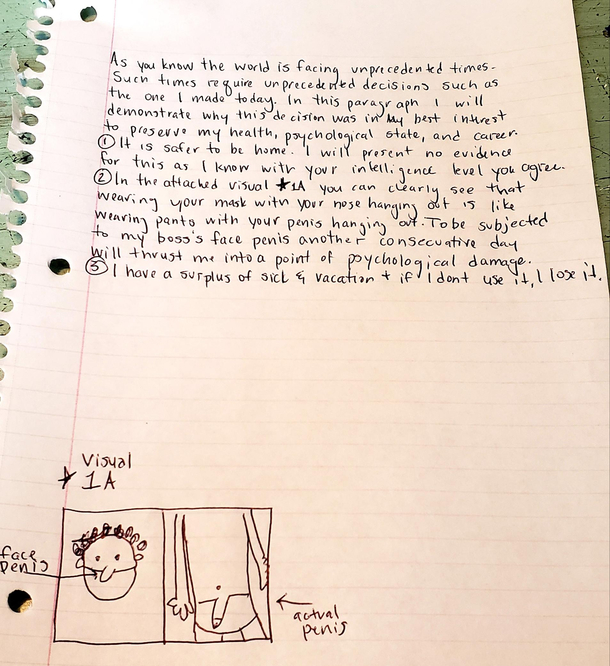 As you know the world is facing unprecedented times.
Such times require unprecedented decisions such as
the one I made today. In this paragraph I will
demonstrate why this decision was in my best interest
to preserve my health, psychological state, and career.
① It is safer to be home. I will present no evidence
for this as I know with your intelligence level you agree.
② In the attached visual ★1A you can clearly see that
wearing your mask with your nose hanging out is like
wearing pants with your penis hanging out. To be subjected
to my boss's face penis another consecuative day
will thrust me into a point of psychological damage.
③ I have a surplus of sick & vacation + if I dont use it, I lose it.
Visual
★ 1A
face
penis
actual
penis